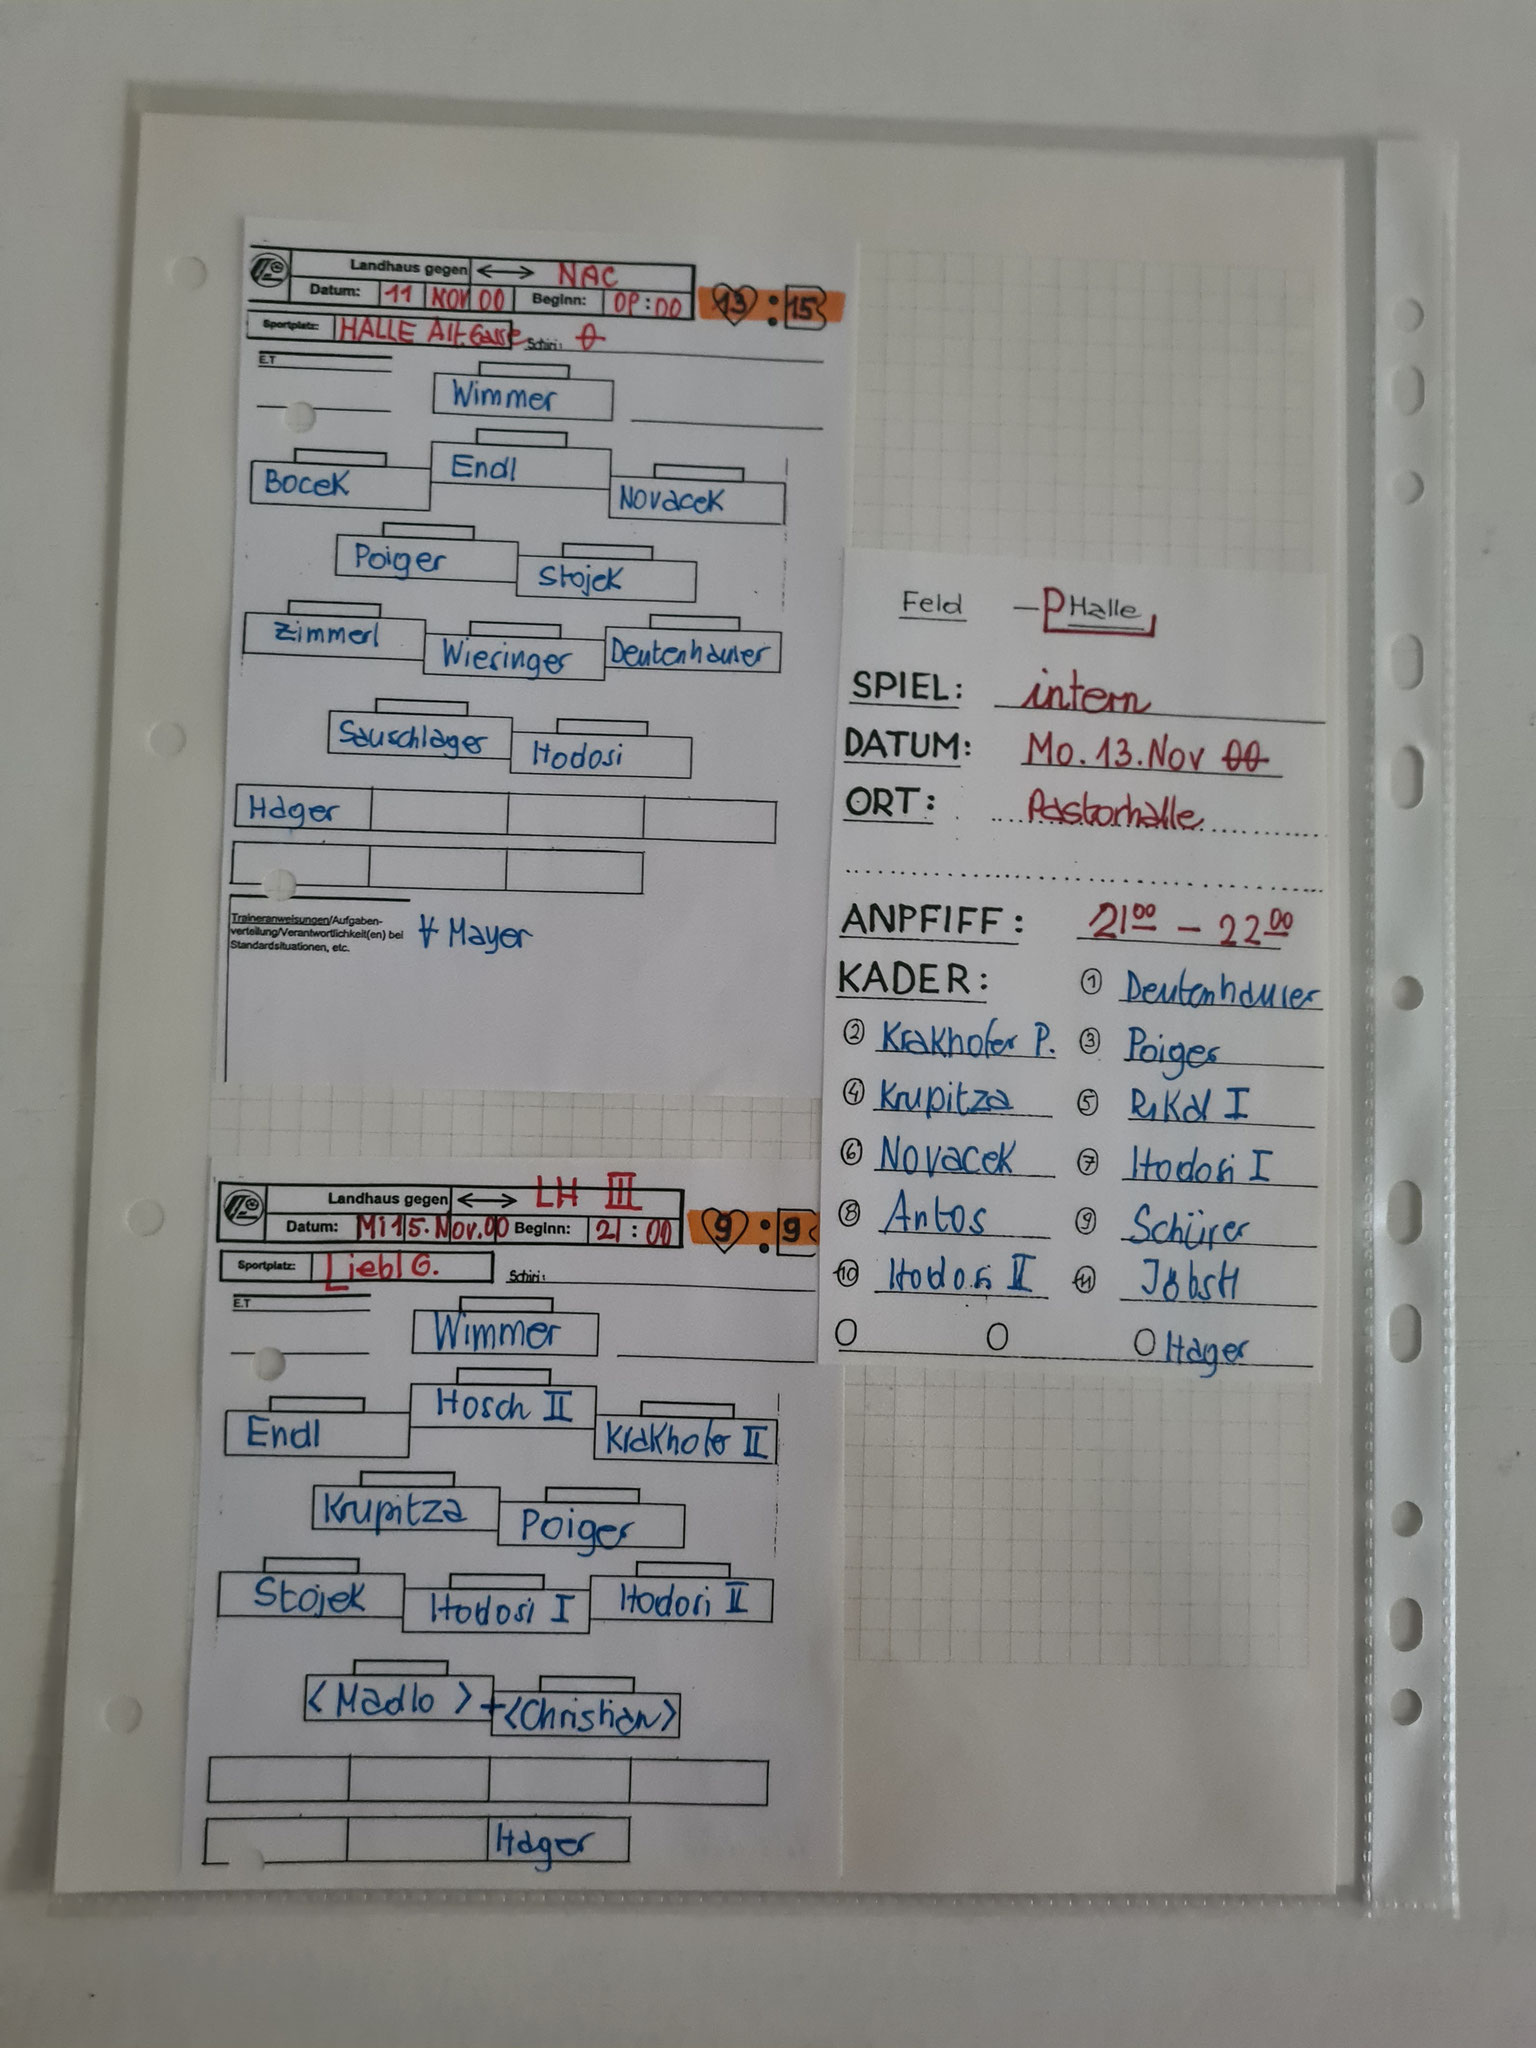 Landhaus gegen ⟷ NAC
Datum: 11 NOV 00 Beginn: 09:00 13 : 15
Sportplatz: HALLE Alt.Gasse Schiri:
E.T
Wimmer
Bocek Endl Novacek
Poiger Stojek
Zimmerl Wiesinger Deutenhauser
Sauschlager Hodosi
Hager
Traineranweisungen/Aufgaben-
verteilung/Verantwortlichkeit(en) bei
Standardsituationen, etc.
Mayer
Feld – Halle
SPIEL: intern
DATUM: Mo. 13. Nov 00
ORT: Pastorhalle
ANPFIFF: 21 00 – 22 00
KADER: 1 Deutenhauser
2 Krakhofer P. 3 Poiger
4 Krupitza 5 Rikal I
6 Novacek 7 Hodosi I
8 Antos 9 Schürer
10 Hodosi II 11 Jöbstl
Hager
Landhaus gegen ⟷ LH III
Datum: Mi 15. Nov. 00 Beginn: 21:00 9 : 9
Sportplatz: Liebl G. Schiri:
E.T
Wimmer
Endl Hosch II Krakhofer II
Krupitza Poiger
Stojek Hodosi I Hodosi II
<Madlo> + <Christian>
Hager